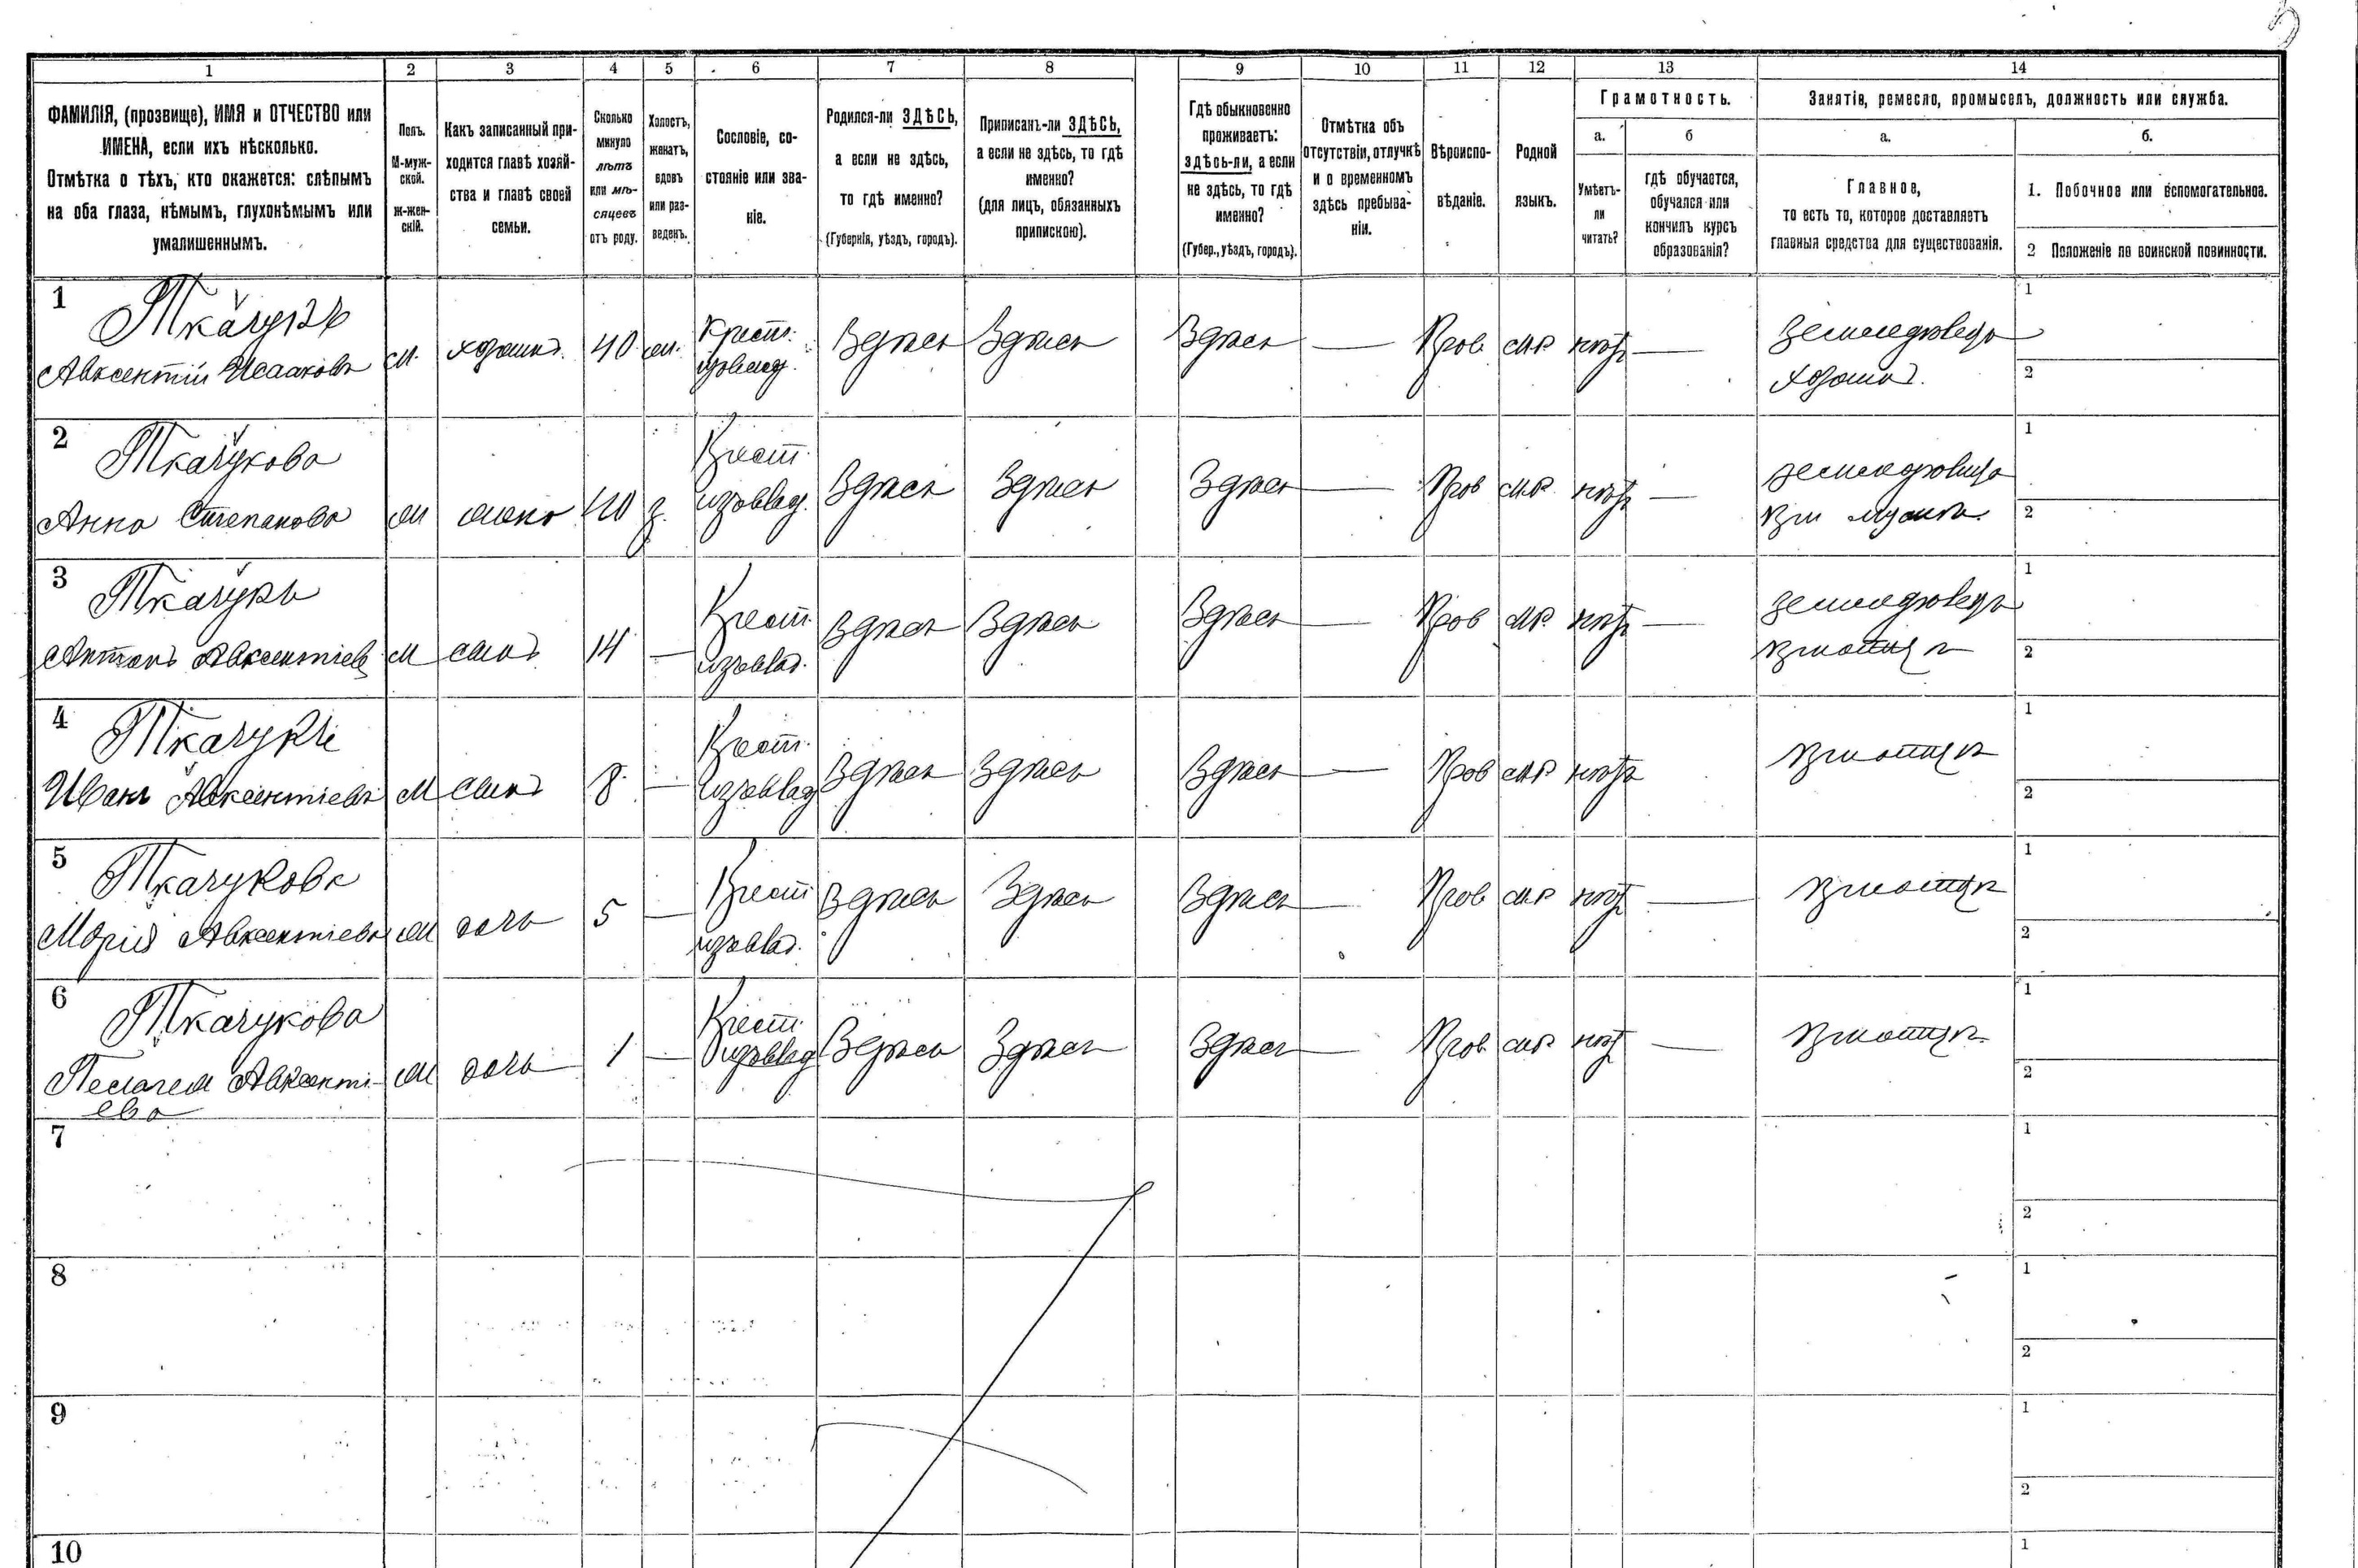 1 2 3 4 5 6 7 8 9 10 11 12 13 14
ФАМИЛІЯ, (прозвище), ИМЯ и ОТЧЕСТВО или
ИМЕНА, если ихъ нѣсколько.
Отмѣтка о тѣхъ, кто окажется: слѣпымъ
на оба глаза, нѣмымъ, глухонѣмымъ или
умалишеннымъ.
Полъ.
М-муж-
ской.
Ж-жен-
скій.
Какъ записанный при-
ходится главѣ хозяй-
ства и главѣ своей
семьи.
Сколько
минуло
лѣтъ
или мѣ-
сяцевъ
отъ роду.
Холостъ,
женатъ,
вдовъ
или раз-
веденъ.
Сословіе, со-
стояніе или зва-
ніе.
Родился-ли ЗДѢСЬ,
а если не здѣсь,
то гдѣ именно?
(Губернія, уѣздъ, городъ).
Приписанъ-ли ЗДѢСЬ,
а если не здѣсь, то гдѣ
именно?
(для лицъ, обязанныхъ
припискою).
Гдѣ обыкновенно
проживаетъ:
здѣсь-ли, а если
не здѣсь, то гдѣ
именно?
(Губер., уѣздъ, городъ).
Отмѣтка объ
отсутствіи, отлучкѣ
и о временномъ
здѣсь пребыва-
ніи.
Вѣроиспо-
вѣданіе.
Родной
языкъ.
Грамотность.
а.
Умѣетъ-
ли
читать?
б
гдѣ обучается,
обучался или
кончилъ курсъ
образованія?
Занятіе, ремесло, промыселъ, должность или служба.
а.
Главное,
то есть то, которое доставляетъ
главныя средства для существованія.
б.
1. Побочное или вспомогательное.
2 Положеніе по воинской повинности.
1 Ткачукъ
Авксентій Исааковъ м. хозяинъ 40 Крест. Здѣсь Здѣсь Здѣсь — Прав м.р. нѣтъ — земледѣлецъ
хозяинъ
1
2
2 Ткачукова
Анна Степанова жена 40 з. Крест. Здѣсь Здѣсь Здѣсь — Прав м.р. нѣтъ —
При мужѣ
1
2
3 Ткачукъ
Антонъ Авксентіевъ м сынъ 14 — Крест. Здѣсь Здѣсь Здѣсь — Прав м.р. нѣтъ — земледѣлецъ
При отцѣ
1
2
4 Ткачукъ
Иванъ Авксентіевъ м сынъ 8 — Крест. Здѣсь Здѣсь Здѣсь — Прав м.р. нѣтъ При отцѣ
1
2
5 Ткачукова
Марія Авксентіева дочь 5 — Крест Здѣсь Здѣсь Здѣсь — Прав м.р. нѣтъ — При отцѣ
1
2
6 Ткачукова
Пелагея Авксенті- дочь 1 — Крест. Здѣсь Здѣсь Здѣсь — Прав м.р. нѣтъ — При отцѣ
ева
1
2
7
1
2
8
1
2
9
1
2
10
1